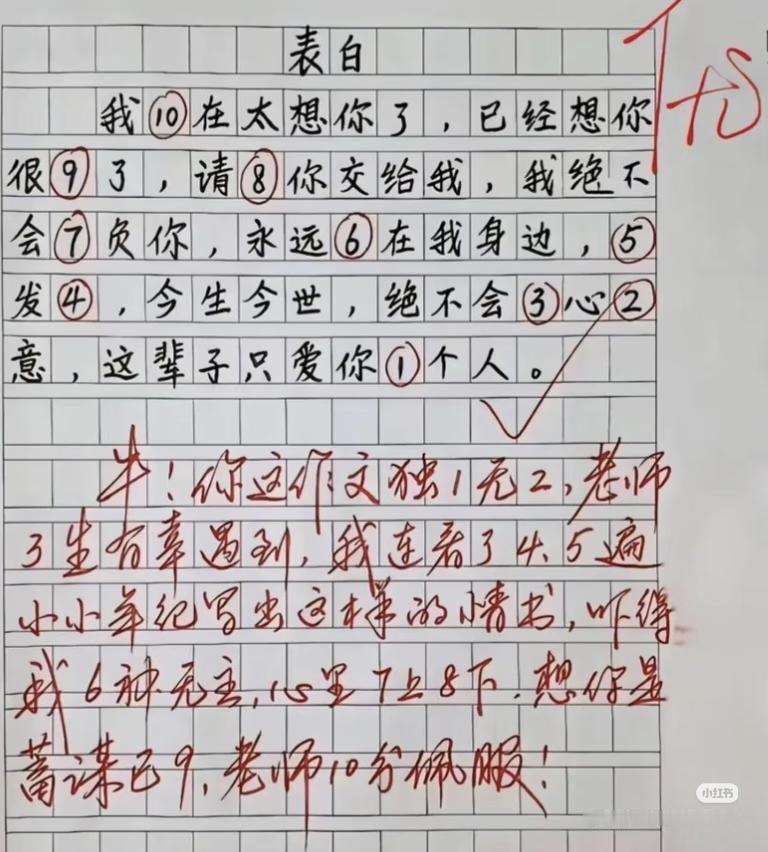 表白
我⑩在太想你了，已经想你
很⑨了，请⑧你交给我，我绝不
会⑦负你，永远⑥在我身边，⑤
发④，今生今世，绝不会③心②
意，这辈子只爱你①个人。
牛！你这作文独1无2，老师
3生有幸遇到，我连看了4、5遍
小小年纪写出这样的情书，吓得
我6神无主，心里7上8下．想你是
蓄谋已9，老师10分佩服！
小红书